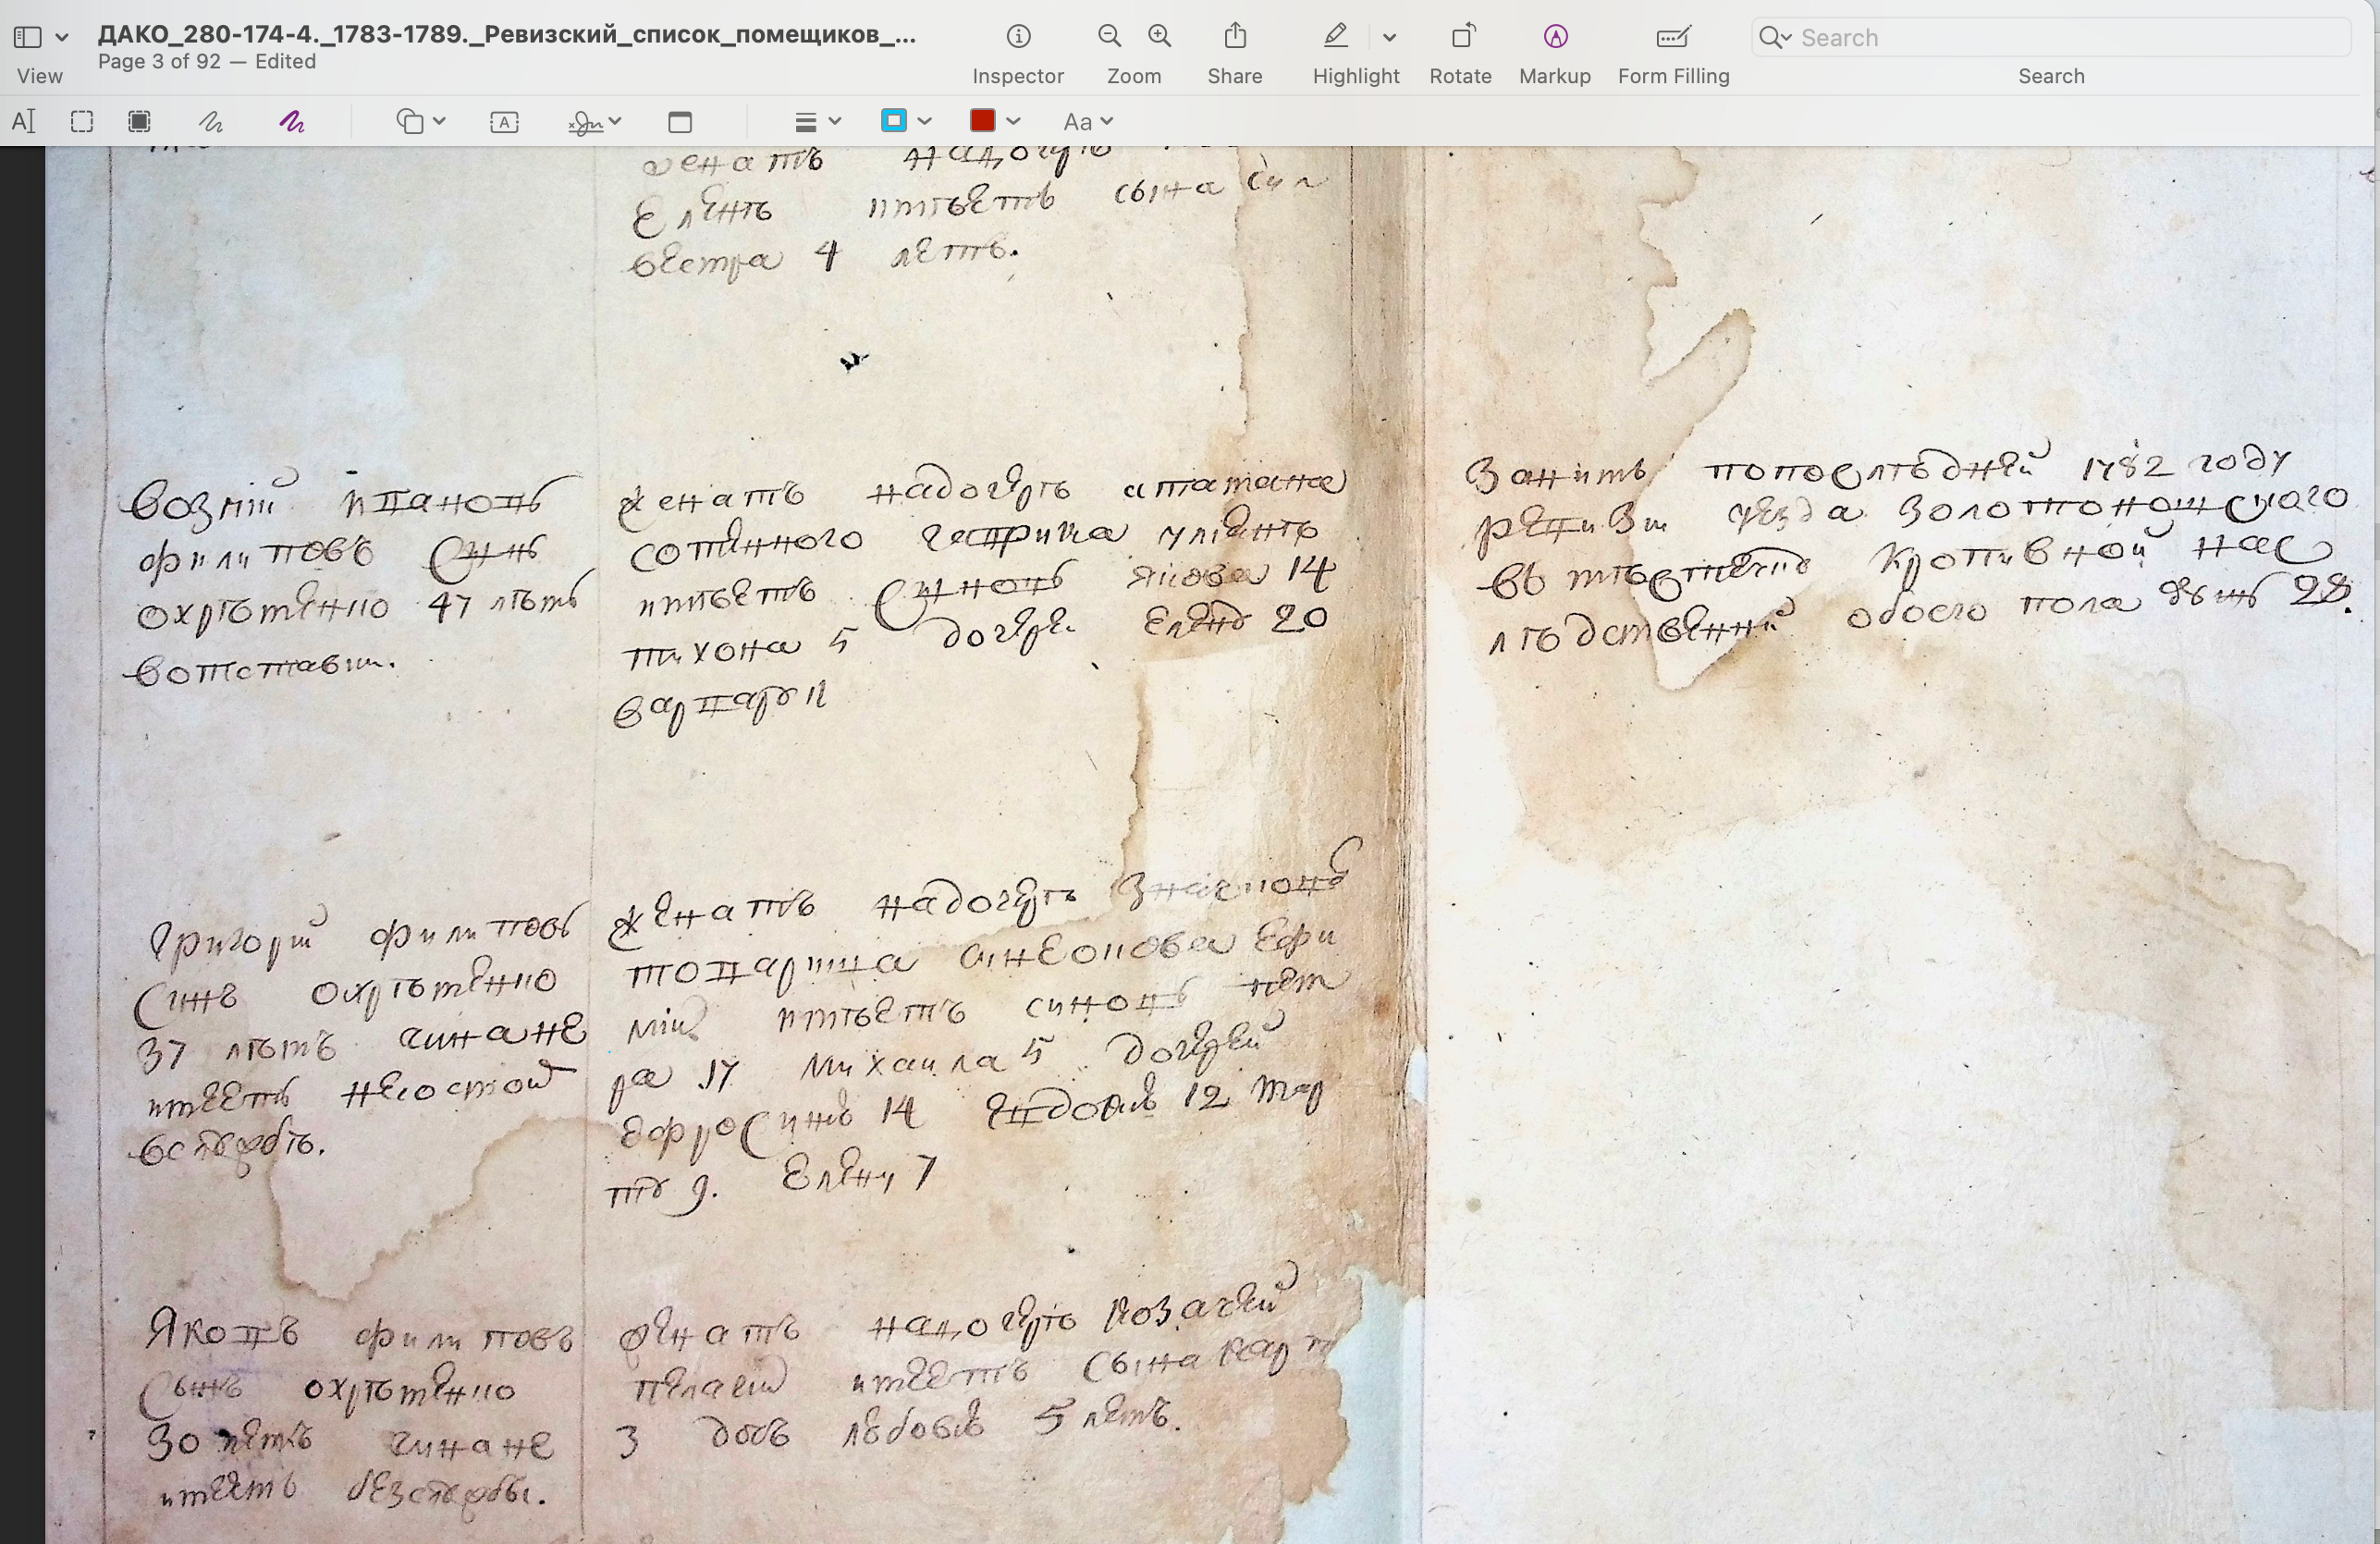 ДАКО_280-174-4._1783-1789._Ревизский_список_помещиков_...
Page 3 of 92 — Edited
View
Inspector
Zoom
Share
Highlight
Rotate
Markup
Form Filling
Search
Search
Aa
женатъ надочерѣ
Еленѣ имѣетъ сына Сил
вестра 4 летъ.
Возній Івановъ
филиповъ Синъ
охрѣменко 47 лѣтъ
вотставки.
женатъ надочерѣ атамана
сотенного уліянѣ
имѣетъ Синовъ Якова 14
тихона 5 дочери Елену 20
варвару 11
Занимъ попослѣдней 1782 году
ревизи уезда Золотоношского
въ мѣстечке Кропивной нас
лѣдственни обоего пола душъ 28.
Григорій филиповъ
Синъ охрѣменко
37 лѣтъ чина не
имеетъ несостои
вслужбѣ.
женатъ надочерѣ Значковъ
товариша Ефи
міи имѣетъ синовъ
ра 17 Михаила 5 дочерей
Ефросинъ 14 Евдокию 12 Мар
ту 9. Елену 7
Яковъ филиповъ
Сынъ охрѣменко
30 летъ чина не
имеетъ безслужбы.
женатъ надочерѣ козачей
пелагеи имеетъ Сына Карп
3 дочь любовь 5 летъ.